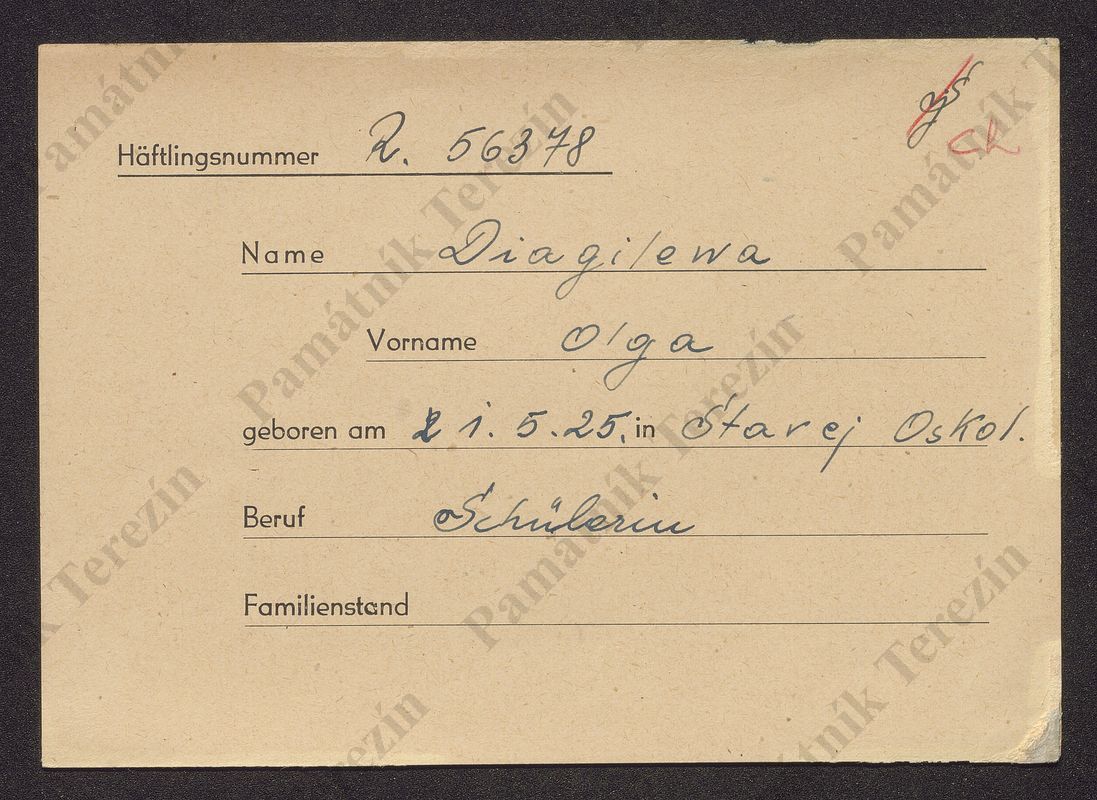 Häftlingsnummer R. 56378
Name Diagilewa
Vorname Olga
geboren am 21. 5. 25. in Starej Oskol.
Beruf Schülerin
Familienstand
Památník Terezín